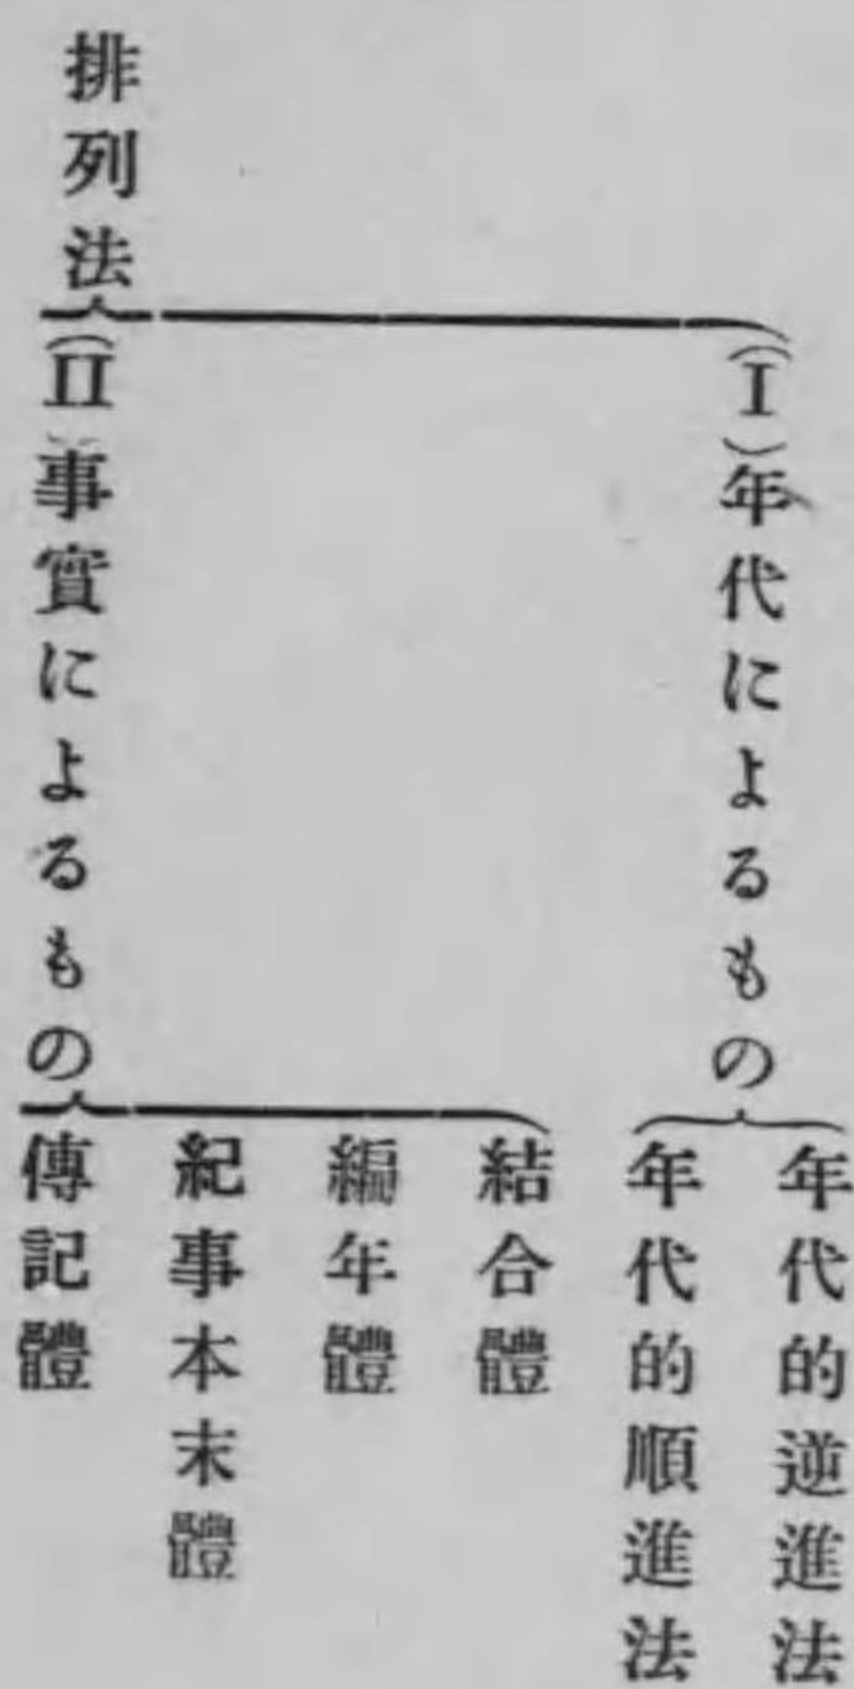 排列法
(I)年代によるもの
年代的逆進法
年代的順進法
(II)事實によるもの
結合體
編年體
紀事本末體
傳記體